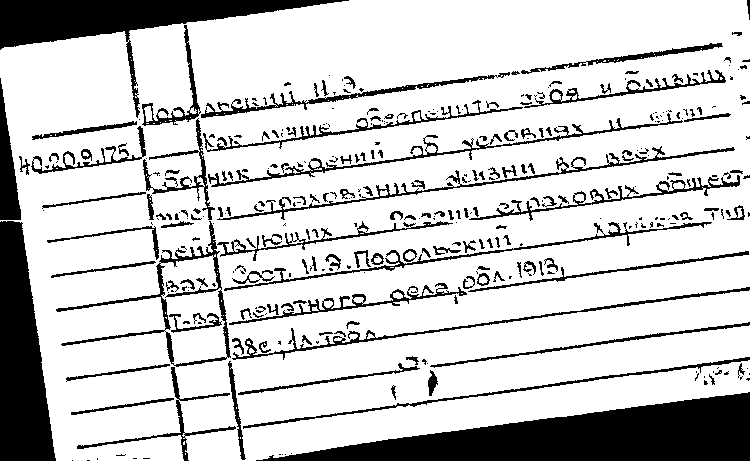 Подольский, И.Э.
40.20.9.175. Как лучше обеспечить себя и близких?
Сборник сведений об условиях и стои-
мости страхования жизни во всех
действующих в России страховых общест-
вах. Сост. И.Э.Подольский. Харьков, тип.
т-ва печатного дела, обл.1913,
38с.; 1л.табл.